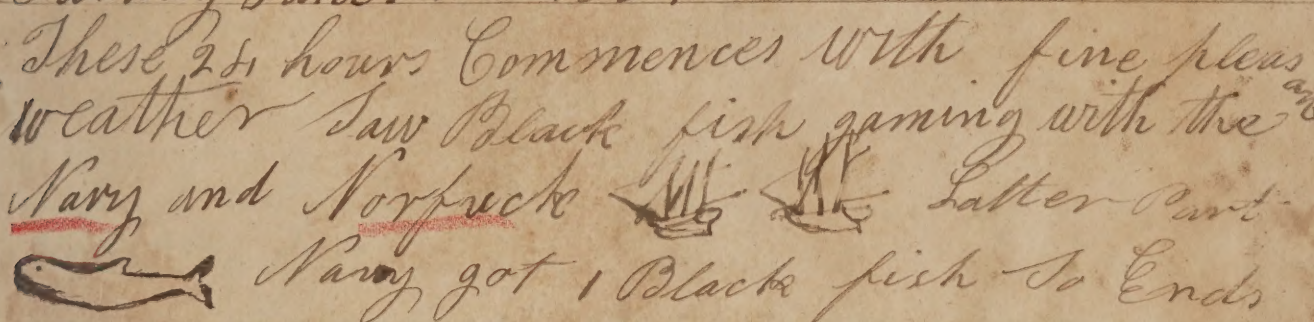 These 24 hours Commences with fine pleasant
weather Saw Black fish gaming with the
Navy and Norfuck Latter Part
Navy got 1 Black fish So Ends